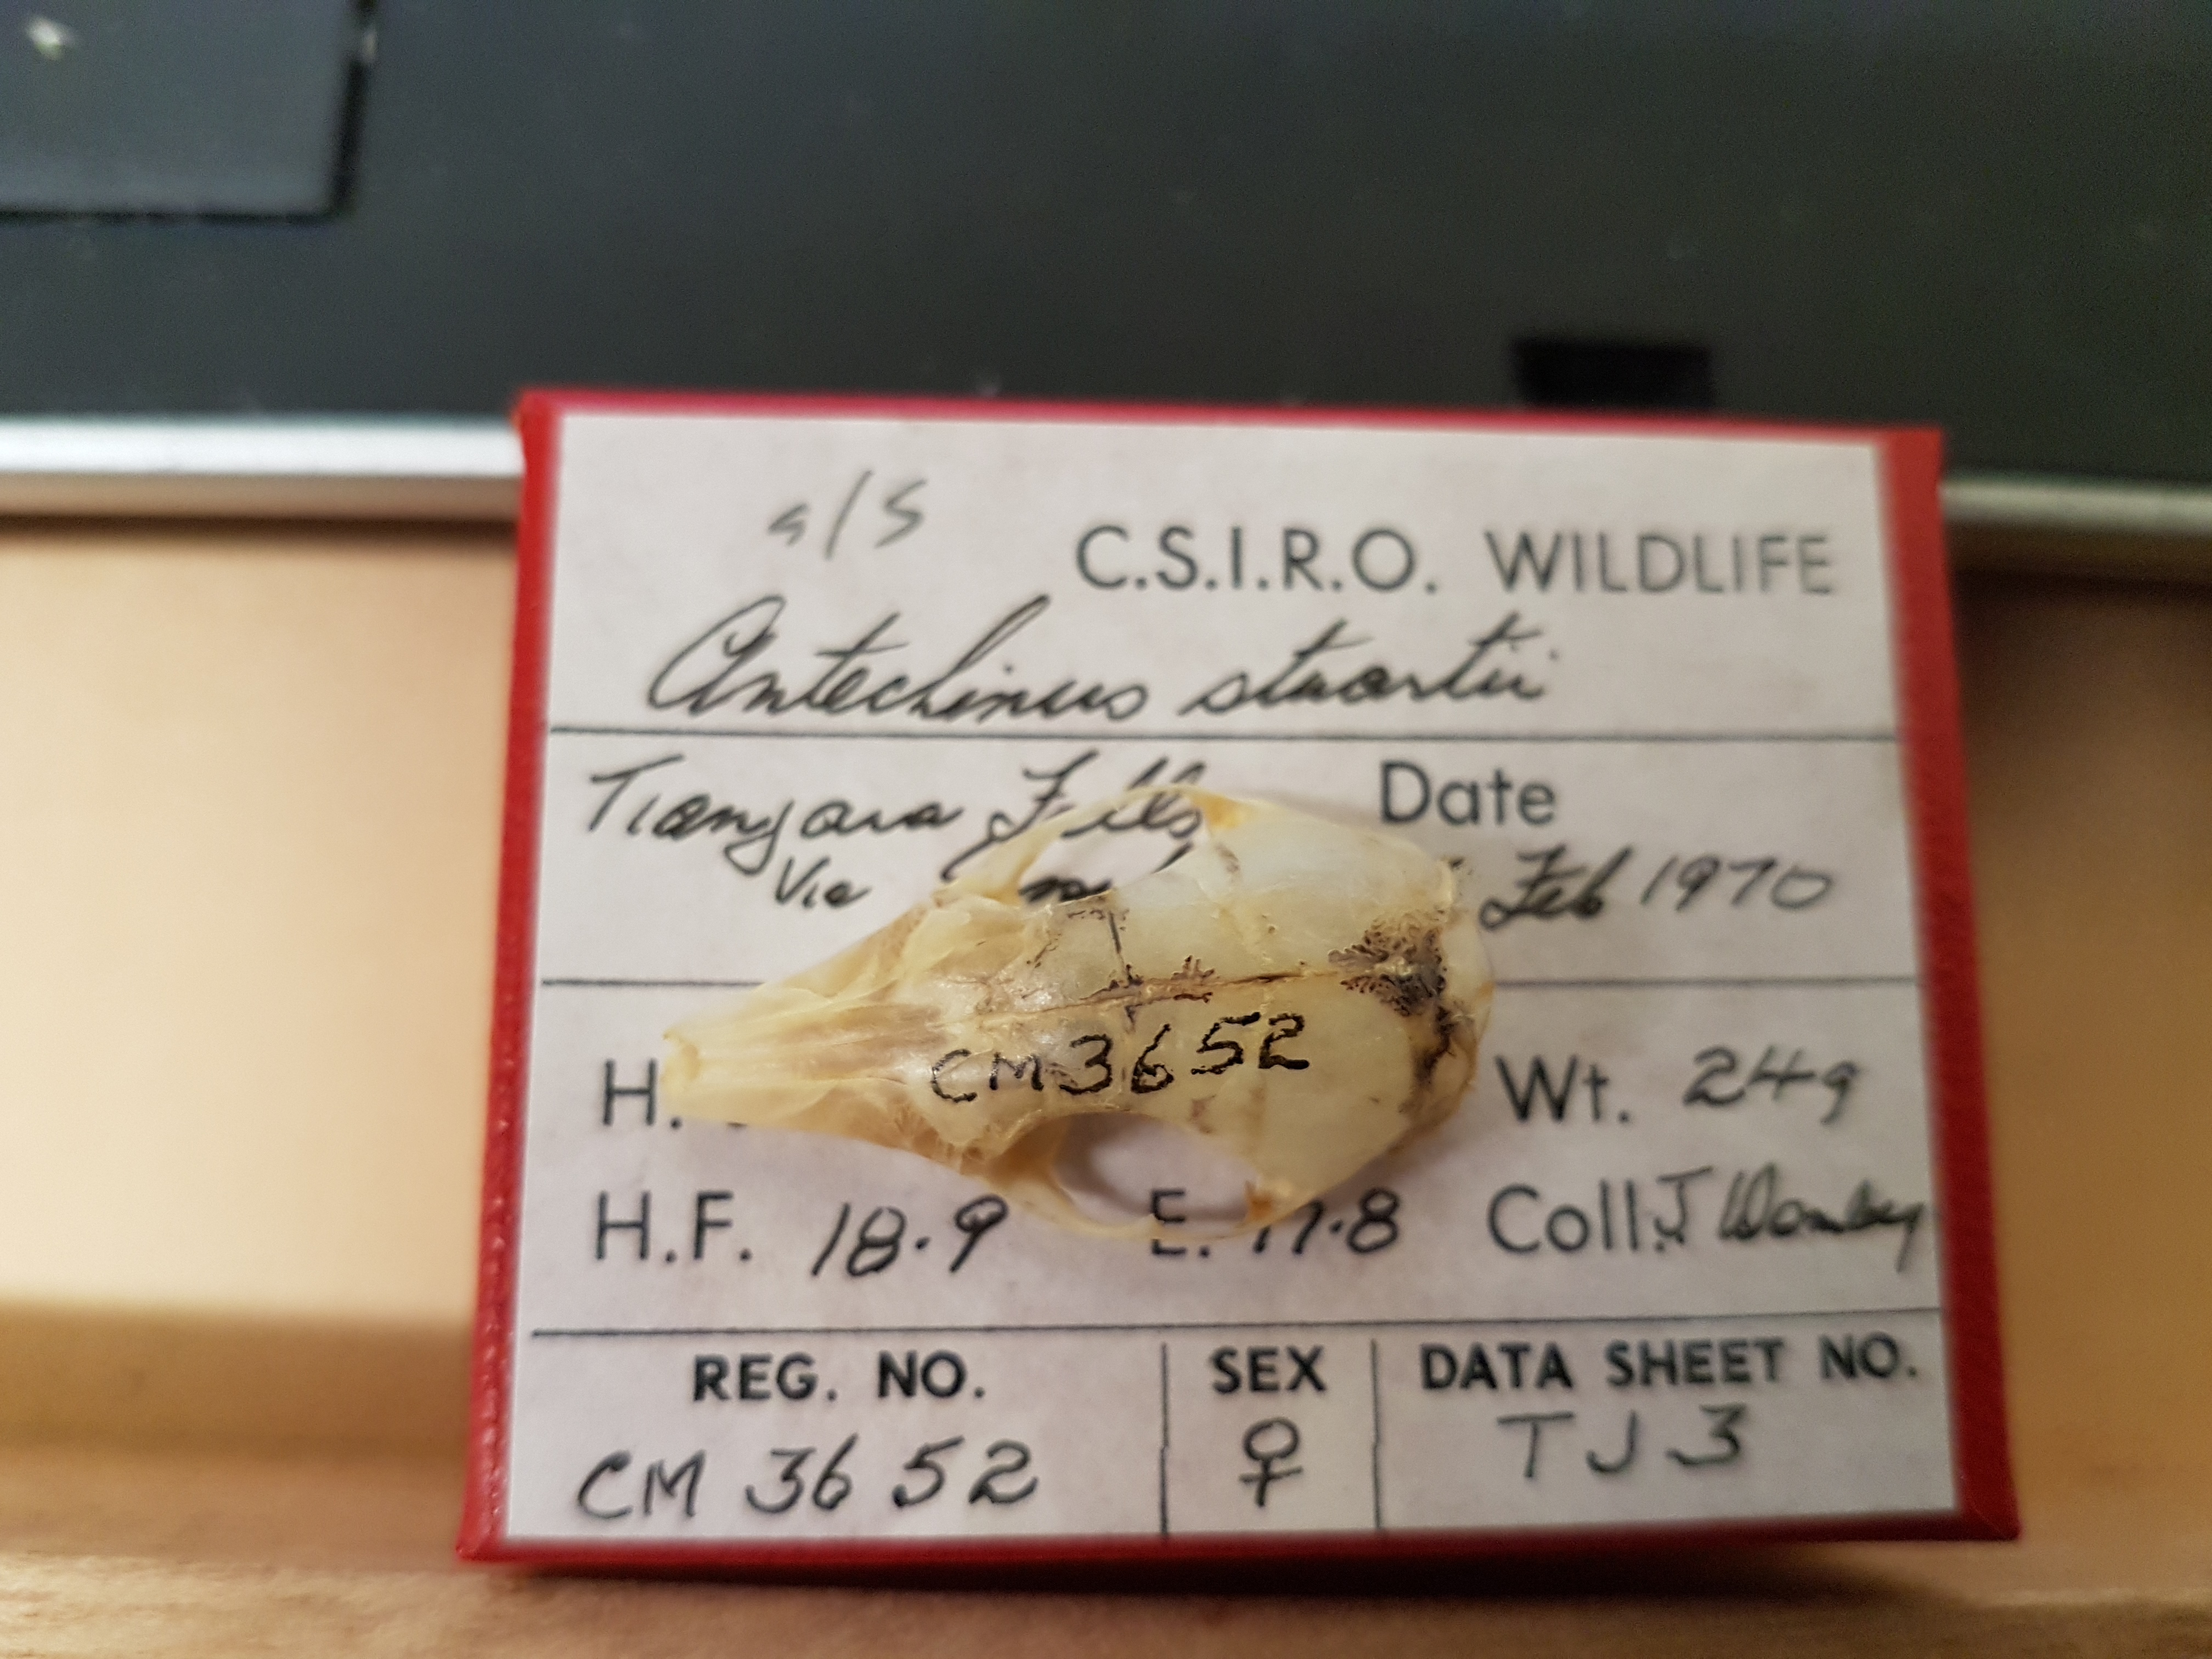 s/s
C.S.I.R.O. WILDLIFE
Antechinus stuartii
Date
Tianjara Falls
Feb 1970
Vic
CM3652
H. Wt. 24g
H.F. 18.9 E. 17.8 Coll. J
REG. NO. SEX DATA SHEET NO.
CM 3652 ♀ TJ 3